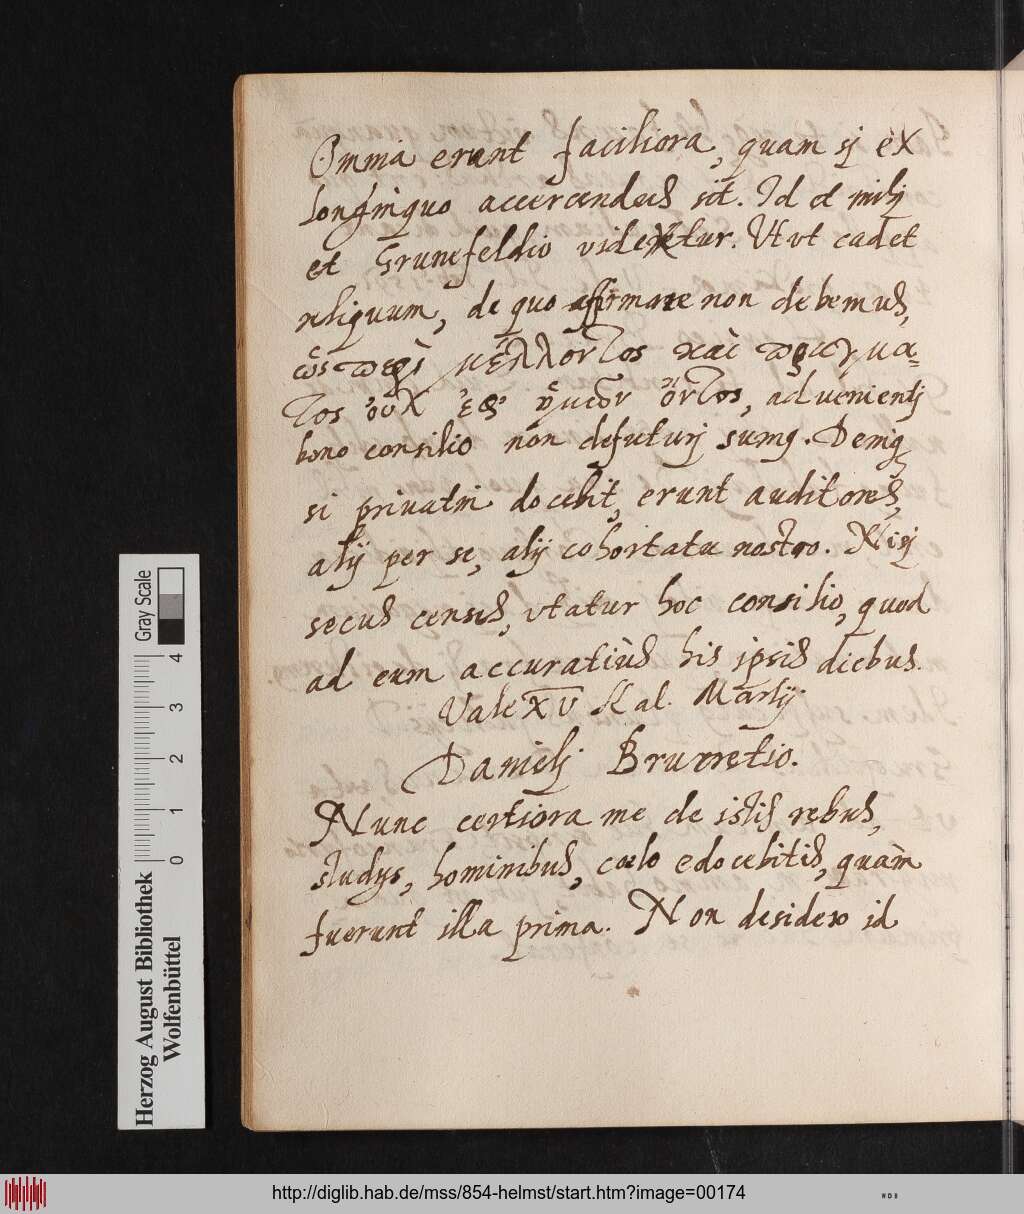 Omnia erunt faciliora, quam sj ex
longinquo accercendus sit. Id et mihj
et Grunefeldio videtur. Vt vt cadet
reliquum, de quo affirmare non debemus,
ὡς περὶ μέλλοντος καὶ πράγμα-
τος οὐκ ἐφ' ἡμῶν ὄντος, advenientj
bono consilio non defuturj sumq. Deniq
si privatim docebit, erunt auditores,
alij per se, alij cohortatu nostro. Nisj
secus censes, vtatur hoc consilio, quod
ad eum accuratiùs his ipsis diebus.
Vale XV Kal. Martij.
Danielj
Nunc certiora me de istis rebus,
studijs, hominibus, coelo edocebitis, quàm
fuerunt illa prima. Non desidero id
Herzog August Bibliothek
Wolfenbüttel
0 1 2 3 4
Gray Scale
http://diglib.hab.de/mss/854-helmst/start.htm?image=00174
WDB